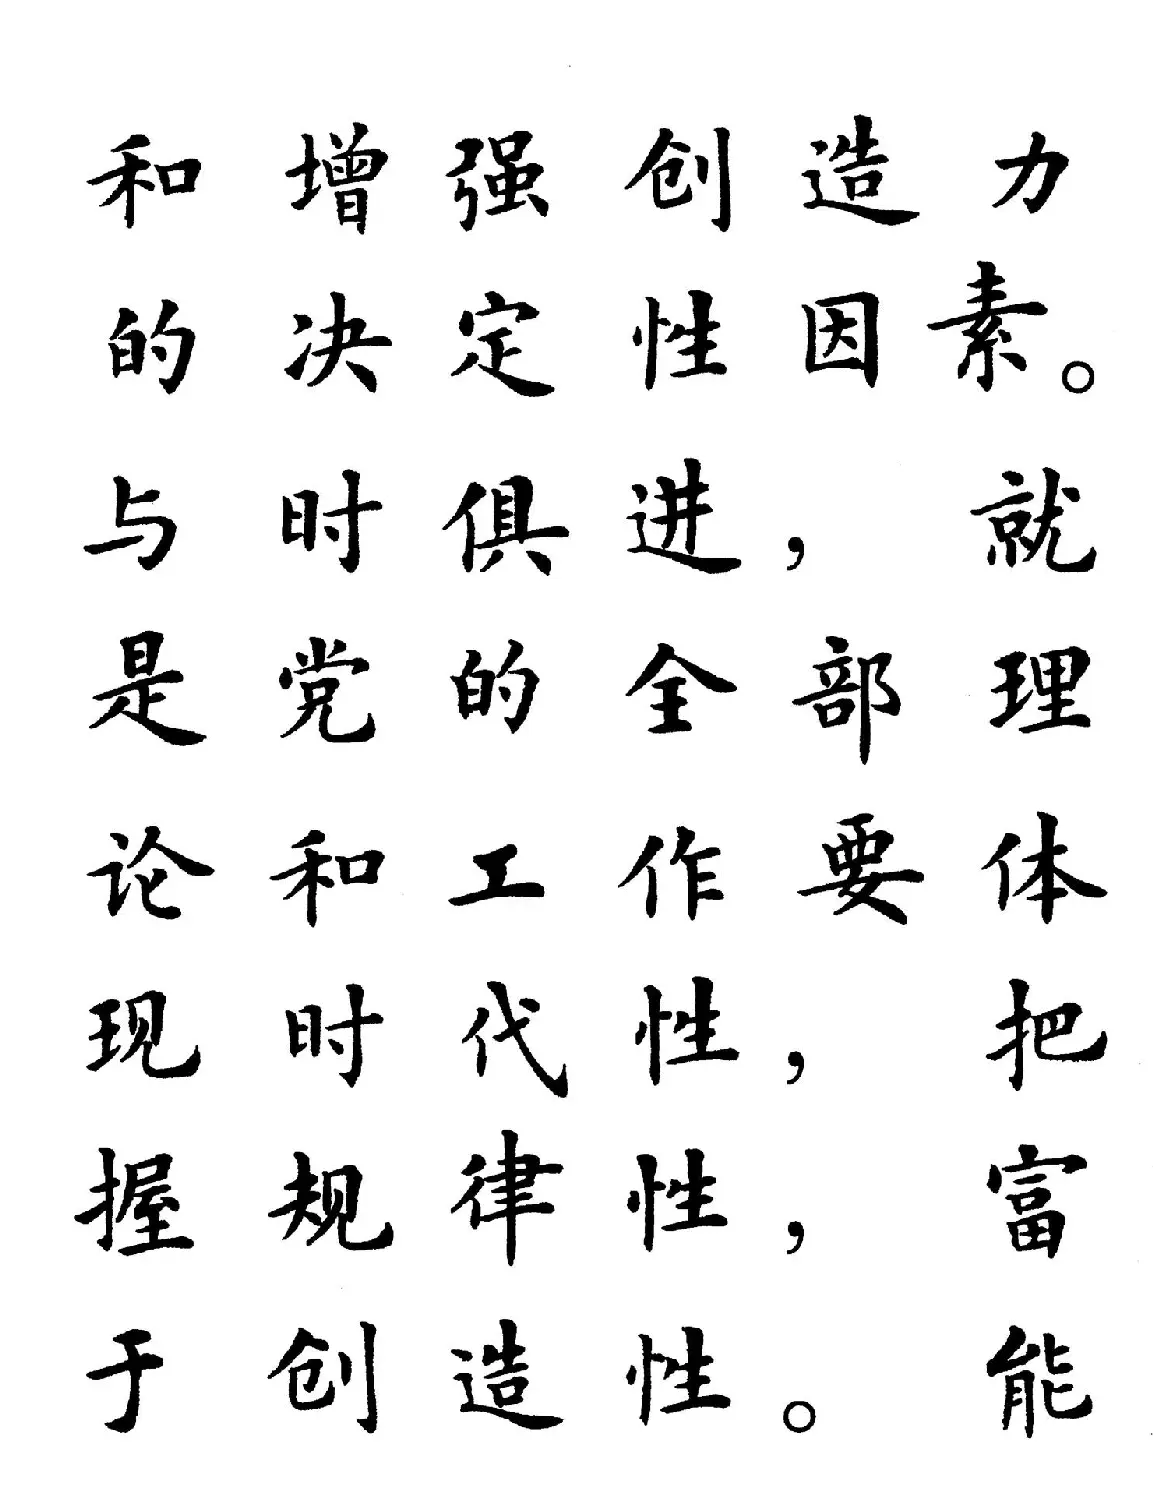 和增强创造力
的决定性因素。
与时俱进，就
是党的全部理
论和工作要体
现时代性，把
握规律性，富
于创造性。能